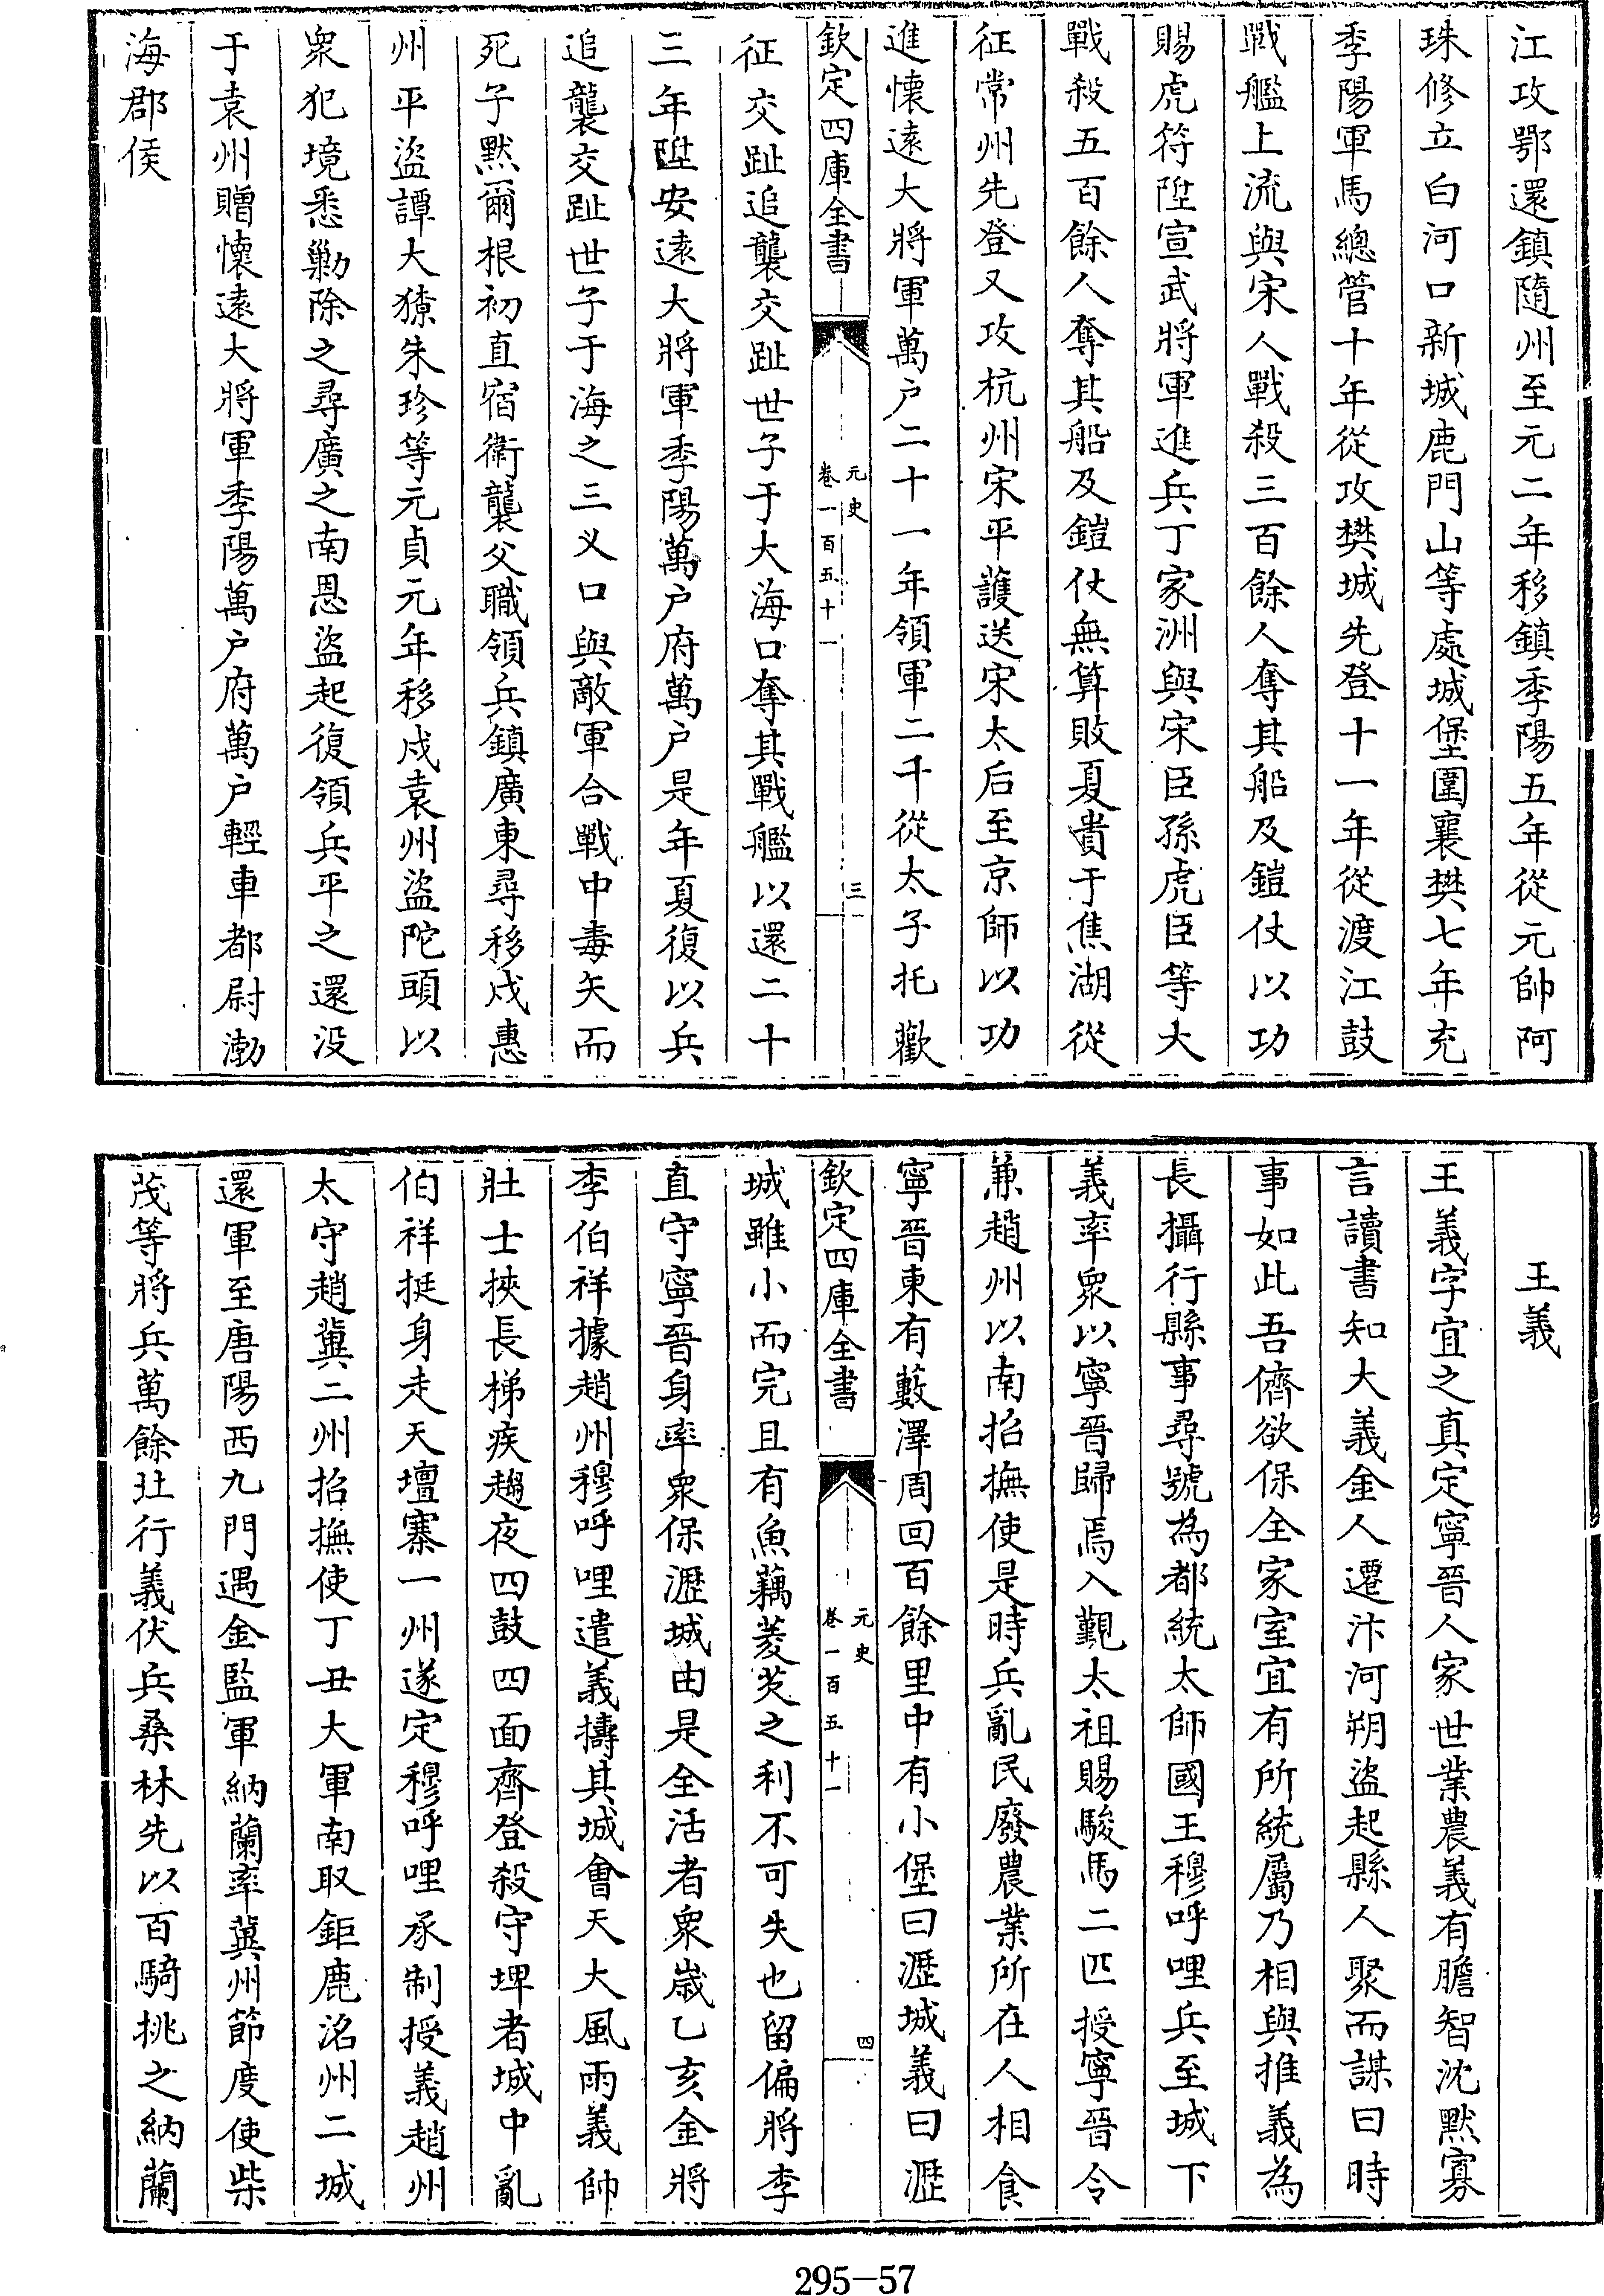 江攻鄂還鎮隨州至元二年移鎮季陽五年從元帥阿
珠修立白河口新城鹿門山等處城堡圍襄樊七年充
季陽軍馬總管十年從攻樊城先登十一年從渡江鼓
戰艦上流與宋人戰殺三百餘人奪其船及鎧仗以功
賜虎符陞宣武將軍進兵丁家洲與宋臣孫虎臣等大
戰殺五百餘人奪其船及鎧仗無算敗夏貴于焦湖從
征常州先登又攻杭州宋平護送宋太后至京師以功
進懷遠大將軍萬户二十一年領軍二千從太子托歡
欽定四庫全書
元史
卷一百五十一
三
征交趾追襲交趾世子于大海口奪其戰艦以還二十
三年陞安遠大將軍季陽萬户府萬户是年夏復以兵
追襲交趾世子于海之三义口與敵軍合戰中毒矢而
死子黙爾根初直宿衛襲父職領兵鎮廣東尋移戍惠
州平盜譚大獠朱珍等元貞元年移戍袁州盜陀頭以
衆犯境悉勦除之尋廣之南恩盜起復領兵平之還没
于袁州贈懷遠大將軍季陽萬户府萬户輕車都尉渤
海郡侯
王義
王義字宜之真定寧晉人家世業農義有膽智沈默寡
言讀書知大義金人遷汴河朔盜起縣人聚而謀曰時
事如此吾儕欲保全家室宜有所統屬乃相與推義為
長攝行縣事尋號為都統太師國王穆呼哩兵至城下
義率衆以寧晉歸焉入覲太祖賜駿馬二匹授寧晉令
兼趙州以南招撫使是時兵亂民廢農業所在人相食
寧晉東有藪澤周回百餘里中有小堡曰瀝城義曰瀝
欽定四庫全書
元史
卷一百五十一
四
城雖小而完且有魚藕菱芡之利不可失也留偏將李
直守寧晉身率衆保瀝城由是全活者衆歲乙亥金將
李伯祥據趙州穆呼哩遣義擣其城會天大風雨義帥
壯士挾長梯疾趨夜四鼓四面齊登殺守埤者城中亂
伯祥挺身走天壇寨一州遂定穆呼哩承制授義趙州
太守趙冀二州招撫使丁丑大軍南取鉅鹿洺州二城
還軍至唐陽西九門遇金監軍納蘭率冀州節度使柴
茂等將兵萬餘北行義伏兵桑林先以百騎挑之納蘭
295-57